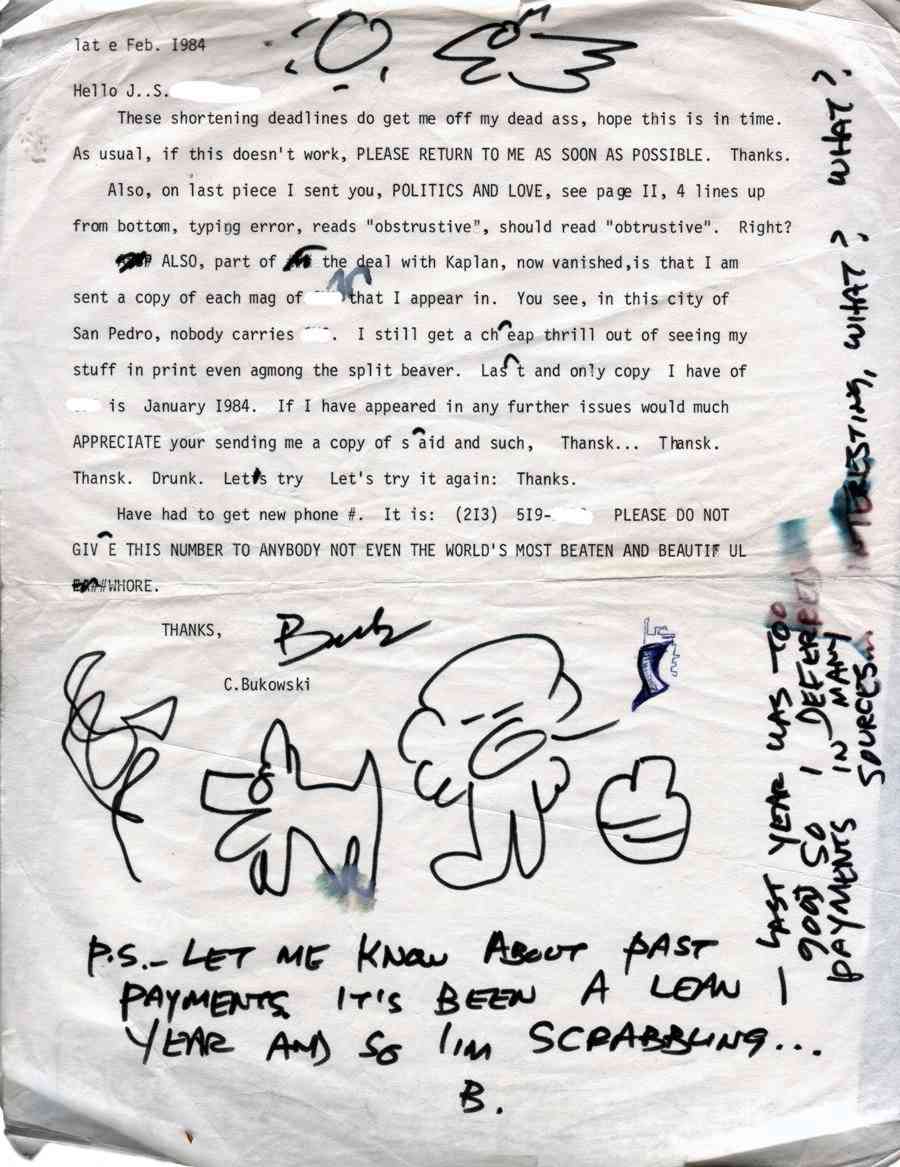 lat e Feb. I984
Hello J..S.
These shortening deadlines do get me off my dead ass, hope this is in time.
As usual, if this doesn't work, PLEASE RETURN TO ME AS SOON AS POSSIBLE. Thanks.
Also, on last piece I sent you, POLITICS AND LOVE, see page II, 4 lines up
from bottom, typing error, reads "obstrustive", should read "obtrustive". Right?
ALSO, part of the deal with Kaplan, now vanished,is that I am
sent a copy of each mag of that I appear in. You see, in this city of
San Pedro, nobody carries . I still get a cheap thrill out of seeing my
stuff in print even agmong the split beaver. Last and only copy I have of
is January I984. If I have appeared in any further issues would much
APPRECIATE your sending me a copy of said and such, Thansk... Thansk.
Thansk. Drunk. Let's try Let's try it again: Thanks.
Have had to get new phone #. It is: (2I3) 5I9- PLEASE DO NOT
GIVE THIS NUMBER TO ANYBODY NOT EVEN THE WORLD'S MOST BEATEN AND BEAUTIF UL
#WHORE.
THANKS,
Buk
C.Bukowski
P.S.— LET ME KNOW ABOUT PAST
PAYMENTS, IT'S BEEN A LEAN
YEAR AND SO I'M SCRABBLING...
B.
— LAST YEAR WAS TOO
GOOD SO I DEFERRED
PAYMENTS IN MANY
SOURCES...
INTERESTING, WHAT? WHAT?